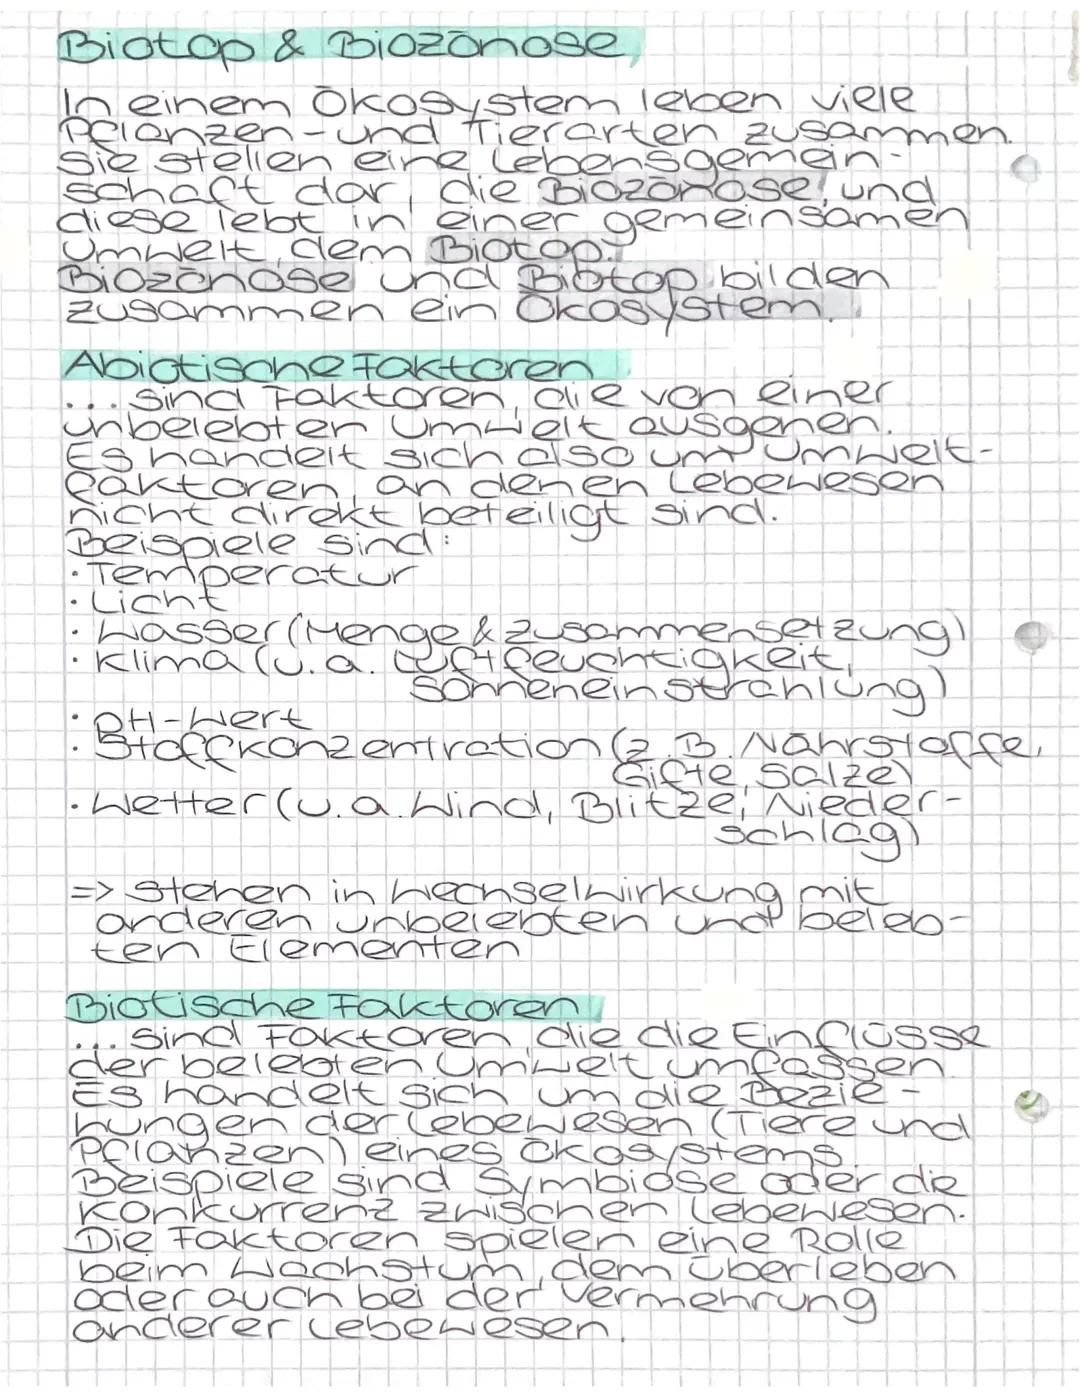 Biotop & Biozönose
In einem Ökosystem leben viele
Pflanzen- und Tierarten zusammen.
Sie stellen eine Lebensgemein-
schaft dar, die Biozönose, und
diese lebt in einer gemeinsamen
Umwelt, dem Biotop.
Biozönose und Biotop bilden
zusammen ein Ökosystem.
Abiotische Faktoren
... sind Faktoren, die von einer
unbelebten Umwelt ausgehen.
Es handelt sich also um Umwelt-
faktoren, an denen Lebewesen
nicht direkt beteiligt sind.
Beispiele sind:
· Temperatur
· Licht
· Wasser (Menge & Zusammensetzung)
· Klima (u.a. Luftfeuchtigkeit,
Sonneneinstrahlung)
· pH-Wert
· Stoffkonzentration (z.B. Nährstoffe,
Gifte, Salze)
· Wetter (u.a. Wind, Blitze, Nieder-
schlag)
=> stehen in Wechselwirkung mit
anderen unbelebten und beleb-
ten Elementen
Biotische Faktoren
... sind Faktoren, die die Einflüsse
der belebten Umwelt umfassen.
Es handelt sich um die Bezie-
hungen der Lebewesen (Tiere und
Pflanzen) eines Ökosystems.
Beispiele sind Symbiose oder die
Konkurrenz zwischen Lebewesen.
Die Faktoren spielen eine Rolle
beim Wachstum, dem Überleben
oder auch bei der Vermehrung
anderer Lebewesen.